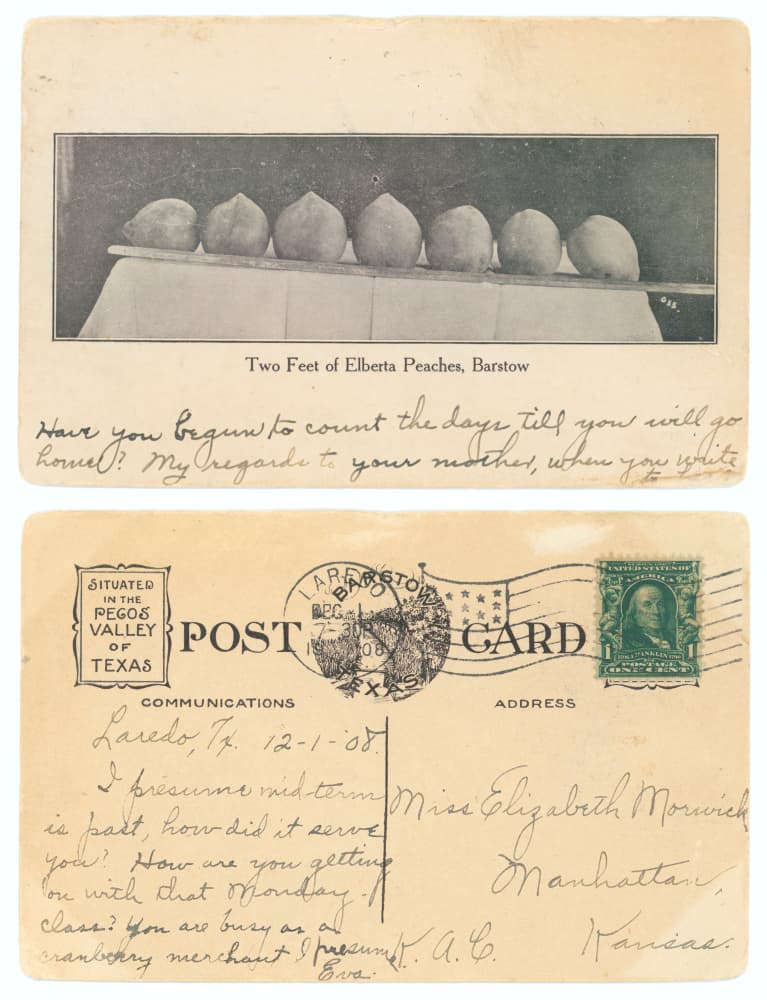 GSS.
Two Feet of Elberta Peaches, Barstow
Have you begun to count the days till you will go
home? My regards to your mother, when you write
to
SITUATED
IN THE
PECOS
VALLEY
OF
TEXAS
POST CARD
BARSTOW
TEXAS
LAREDO
DEC 1
7-30P
1908
UNITED STATES OF
AMERICA
1 1
POSTAGE
ONE CENT
COMMUNICATIONS
ADDRESS
Laredo, Tx. 12-1-'08.
I presume mid-term
is past, how did it serve
you? How are you getting
on with that Monday
class? You are busy as a
cranberry merchant I presume
Eva.
Miss Elizabeth Morwick
Manhattan,
K. A. C. Kansas.